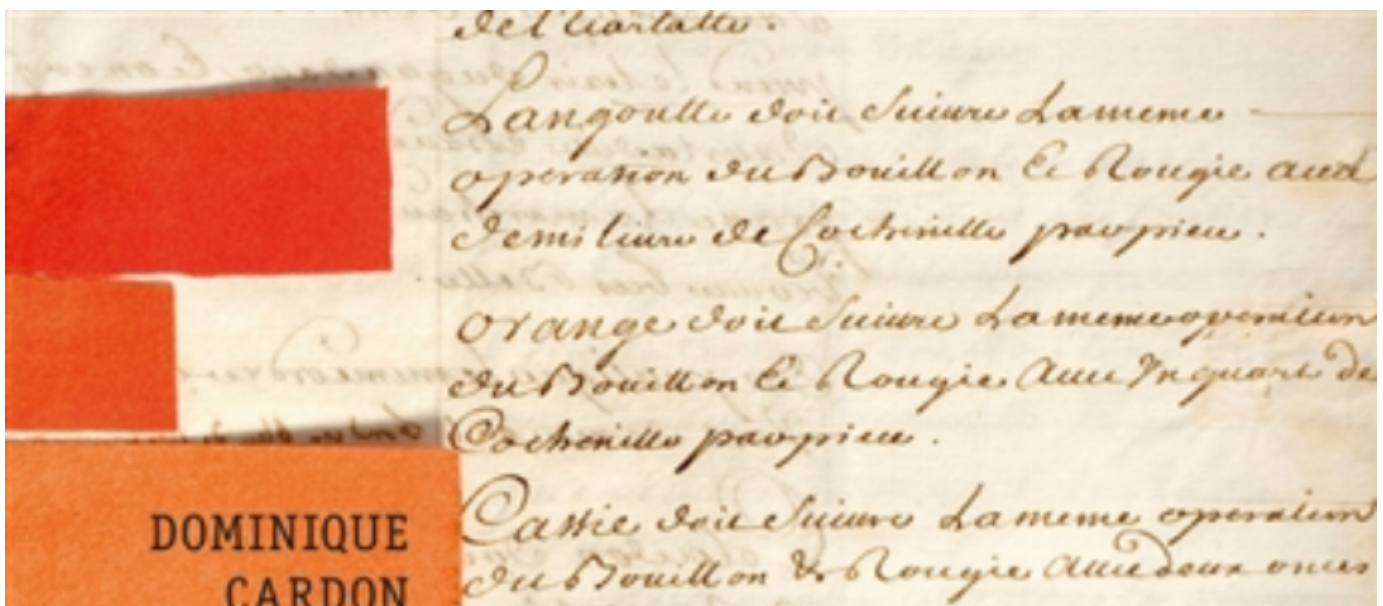 de l'Ecarlatte.
Langoutte doit Suiure La meme
operation du Bouillon & Rougie aued
demi liure de Cochenille par piece.
orange doit Suiure La meme operation
du Bouillon & Rougie Auec Un quart de
Cochenille par piece.
Cassie doit Suiure La meme operation
du Bouillon & Rougie Auec deux onces
DOMINIQUE
CARDON